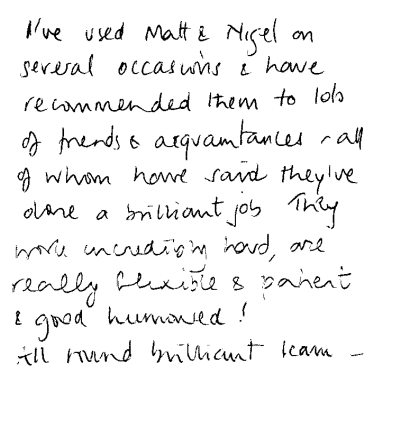 I've used Matt & Nigel on
several occasions & have
recommended them to lots
of friends & acquaintances - all
of whom have said they've
done a brilliant job They
work incredibly hard, are
really flexible & patient
& good humoured!
All round brilliant team -